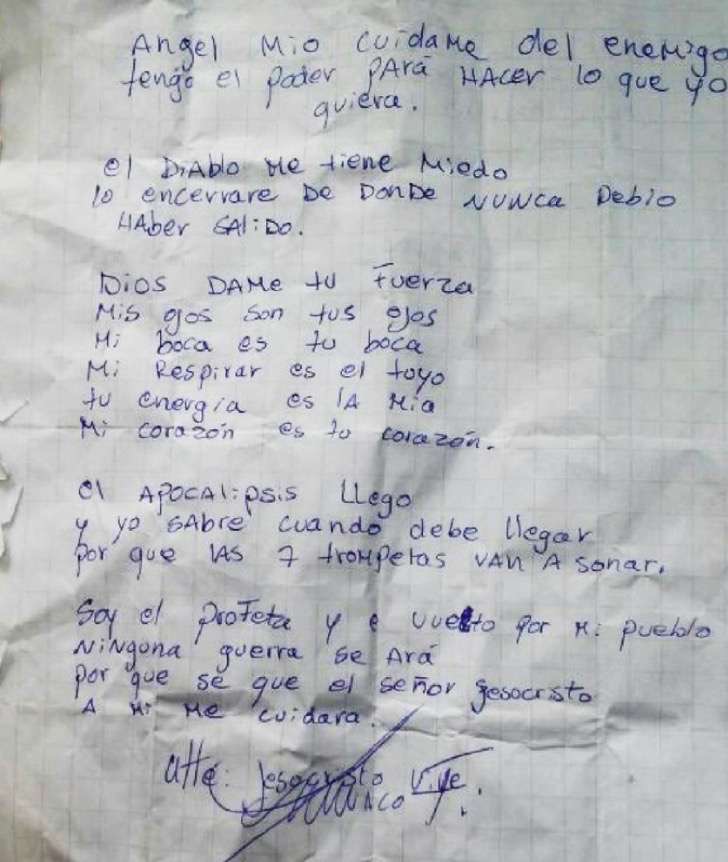 Angel Mio cuidame del enemigo
tengo el poder pArá HAcer lo que yo
quiera.
el DiAblo me tiene Miedo
lo encerrare De DonDe NUNca Debio
HAber SAliDo.
Dios DAMe tu Fuerza
Mis ojos son tus ojos
Mi boca es tu boca
Mi Respirar es el tuyo
tu energia es lA Mia
Mi corazón es tu corazón.
el APOCAlipsis LLego
y yo SAbre cuando debe llegar
por que lAS 7 trompetas vAn A sonar.
Soy el profeta y e vuelto por Mi pueblo
NiNgona guerra se Ará
por que se que el señor jesocristo
A Mi Me cuidara.
Atte: Jesocristo Vive.